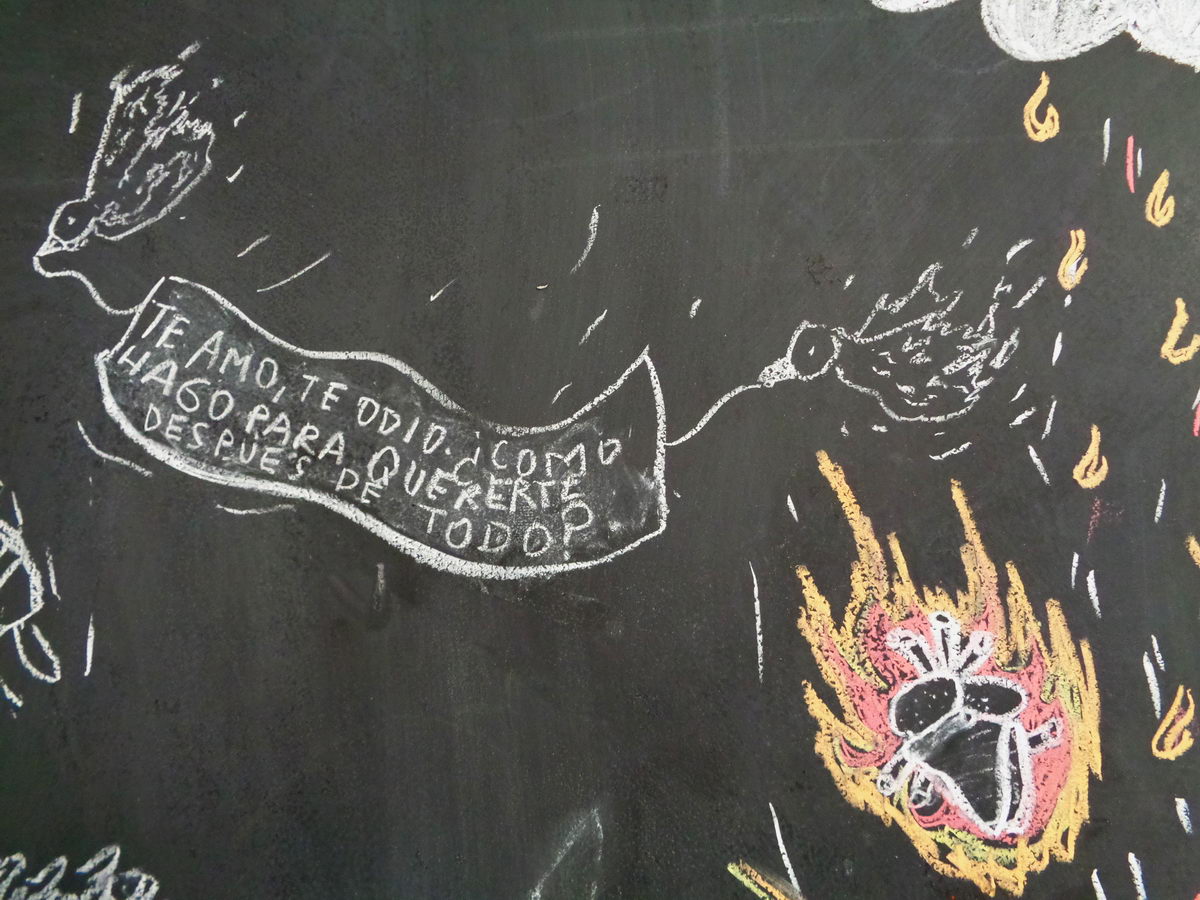 TE AMO, TE ODIO. ¿COMO
HAGO PARA QUERERTE
DESPUÉS DE TODO?